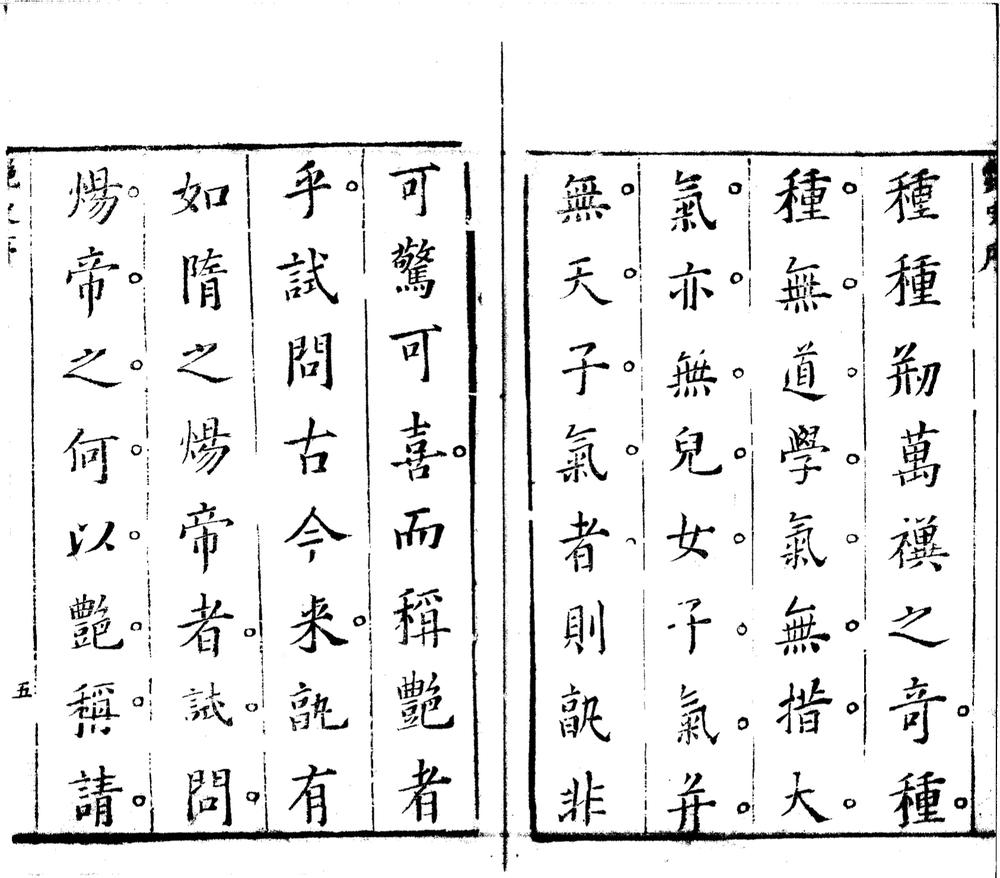 種種刱萬禩之奇種
種無道學氣無措大
氣亦無兒女子氣并
無天子氣者則孰非
可驚可喜而稱艷者
乎試問古今来孰有
如隋之煬帝者試問
煬帝之何以艷稱請
五